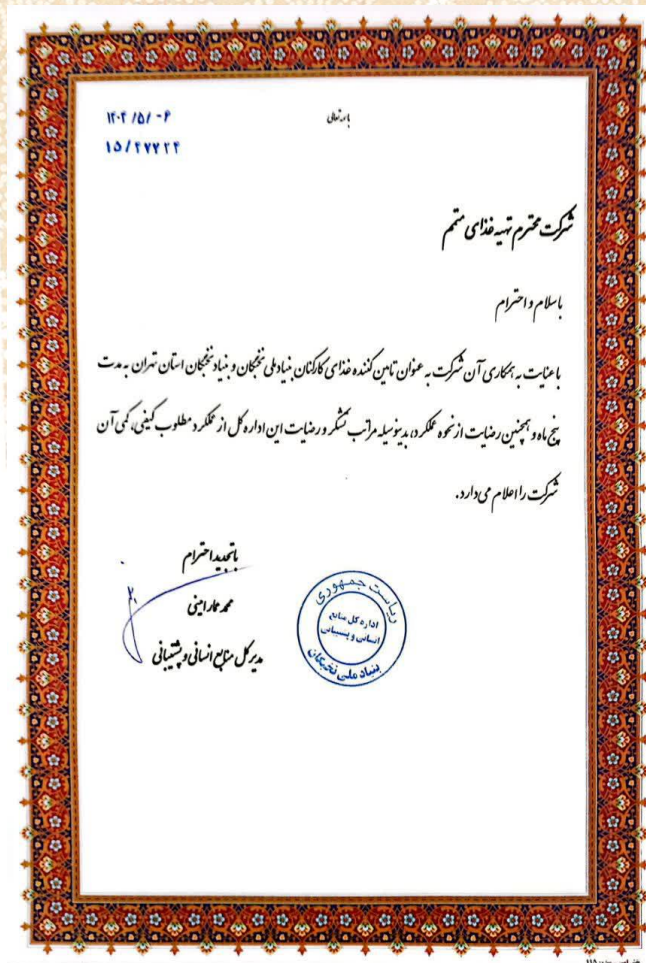 باسمه تعالی
۱۴۰۴/۵/۰۴
۱۵/۴۷۷۲۴
شرکت محترم تهیه غذای متمم
باسلام و احترام
با عنایت به همکاری آن شرکت به عنوان تامین کننده غذای کارکنان بنیاد ملی نخبگان و بنیاد نخبگان استان تهران به مدت
پنج ماه و همچنین رضایت از نحوه عملکرد، بدینوسیله مراتب تشکر و رضایت این اداره کل از عملکرد مطلوب کیفی، کمی آن
شرکت را اعلام می‌دارد.
باتجدید احترام
محمد عمار امینی
مدیرکل منابع انسانی و پشتیبانی
ریاست جمهوری
اداره کل منابع
انسانی و پشتیبانی
بنیاد ملی نخبگان